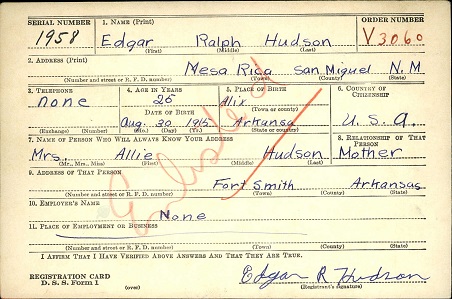 SERIAL NUMBER 1. NAME (Print) ORDER NUMBER
1958 Edgar Ralph Hudson V3060
(First) (Middle) (Last)
2. ADDRESS (Print)
Mesa Rica San Miguel N.M
(Number and street or R. F. D. number) (Town) (County) (State)
3. TELEPHONE 4. AGE IN YEARS 5. PLACE OF BIRTH 6. COUNTRY OF CITIZENSHIP
none 25 Alix
DATE OF BIRTH (Town or county)
Aug. 20 1915 Arkansa U.S.A.
(Exchange) (Number) (Mo.) (Day) (Yr.) (State or country)
7. NAME OF PERSON WHO WILL ALWAYS KNOW YOUR ADDRESS 8. RELATIONSHIP OF THAT PERSON
Mrs. Allie Hudson Mother
(Mr., Mrs., Miss) (First) (Middle) (Last)
9. ADDRESS OF THAT PERSON
Fort Smith Arkansas
(Number and street or R. F. D. number) (Town) (County) (State)
10. EMPLOYER'S NAME
None
11. PLACE OF EMPLOYMENT OR BUSINESS
(Number and street or R. F. D. number) (Town) (County) (State)
I AFFIRM THAT I HAVE VERIFIED ABOVE ANSWERS AND THAT THEY ARE TRUE.
REGISTRATION CARD
D. S. S. Form 1 (over) Edgar R Hudson
(Registrant's signature)
Enlisted